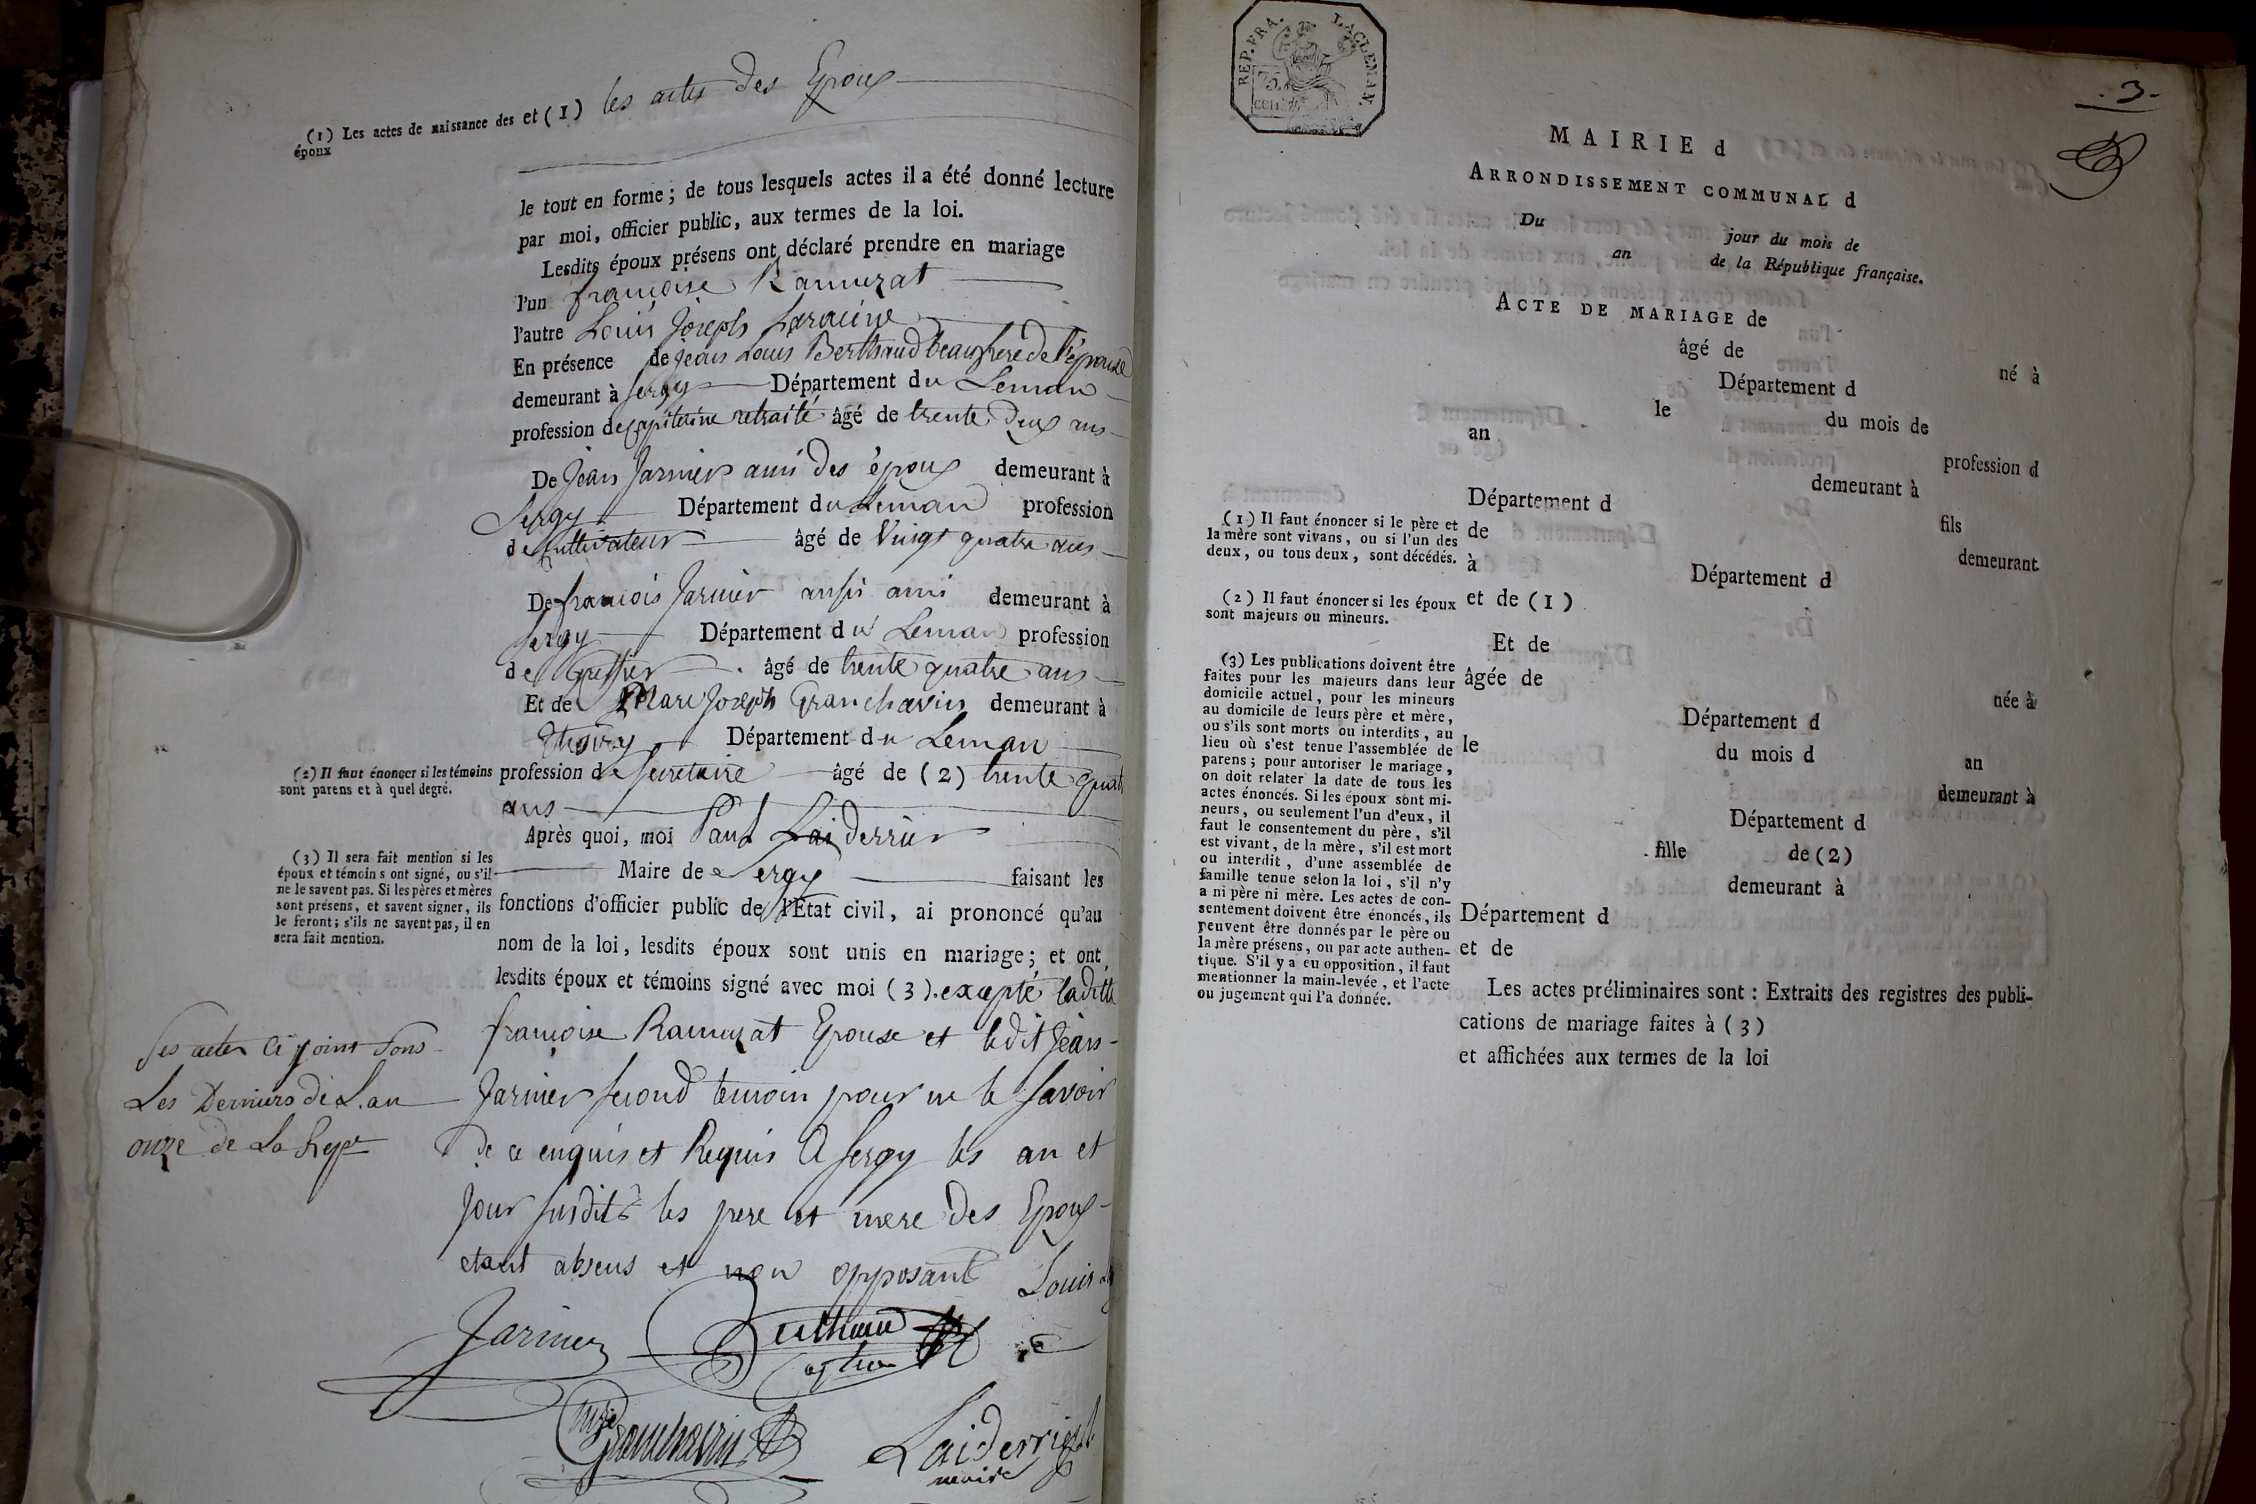 (1) Les actes de naissance des époux
et (1) les actes des Epoux
le tout en forme ; de tous lesquels actes il a été donné lecture
par moi, officier public, aux termes de la loi.
Lesdits époux présens ont déclaré prendre en mariage
l'un françoise Ramuzat
l'autre Louis Joseph
En présence de jean Louis Berthaud beaufrere de l'épouse
demeurant à Sergy Département du Leman
profession de capitaine retraité âgé de trente deux ans
De Jean Jarnier ami des époux demeurant à
Sergy Département du Leman profession
de Cultivateur âgé de Vingt quatre ans
De françois Jarnier aussi ami demeurant à
Sergy Département du Leman profession
de Greffier âgé de trente quatre ans
Et de Marc Joseph Granchavin demeurant à
Thoiry Département du Leman
(2) Il faut énoncer si les témoins
sont parens et à quel degré.
profession de Secretaire âgé de (2) trente quat
ans
Après quoi, moi Paul Laiderrier
Maire de Sergy faisant les
fonctions d'officier public de l'Etat civil, ai prononcé qu'au
nom de la loi, lesdits époux sont unis en mariage ; et ont
lesdits époux et témoins signé avec moi (3). excepté laditte
(3) Il sera fait mention si les
époux et témoins ont signé, ou s'il
ne le savent pas. Si les pères et mères
sont présens, et savent signer, ils
le feront ; s'ils ne savent pas, il en
sera fait mention.
françoise Ramuzat Epouse et ledit Jean
Jarnier second temoin pour ne le savoir
de ce enquis et Requis A Sergy les an et
Jour susdits les pere et mere des Epoux
etant absens et non opposant
Les actes ci joint sont
Les Derniers de L'an
onze de La Repe
Louis
Jarnier
Berthaud
Granchavin
Laiderrier
maire
REP. FRA.
75.
CENT.
. 3 .
MAIRIE d
ARRONDISSEMENT COMMUNAL d
Du jour du mois de
an de la République française.
ACTE DE MARIAGE de
âgé de né à
Département d
le du mois de
an profession d
demeurant à
Département d
de fils
à demeurant
Département d
et de (1)
Et de
âgée de
née à
Département d
le du mois d an
demeurant à
Département d
fille de (2)
demeurant à
Département d
et de
Les actes préliminaires sont : Extraits des registres des publi-
cations de mariage faites à (3)
et affichées aux termes de la loi
(1) Il faut énoncer si le père et
la mère sont vivans, ou si l'un des
deux, ou tous deux, sont décédés.
(2) Il faut énoncer si les époux
sont majeurs ou mineurs.
(3) Les publications doivent être
faites pour les majeurs dans leur
domicile actuel, pour les mineurs
au domicile de leurs père et mère,
ou s'ils sont morts ou interdits, au
lieu où s'est tenue l'assemblée de
parens ; pour autoriser le mariage,
on doit relater la date de tous les
actes énoncés. Si les époux sont mi-
neurs, ou seulement l'un d'eux, il
faut le consentement du père, s'il
est vivant, de la mère, s'il est mort
ou interdit, d'une assemblée de
famille tenue selon la loi, s'il n'y
a ni père ni mère. Les actes de con-
sentement doivent être énoncés, ils
peuvent être donnés par le père ou
la mère présens, ou par acte authen-
tique. S'il y a eu opposition, il faut
mentionner la main-levée, et l'acte
ou jugement qui l'a donnée.